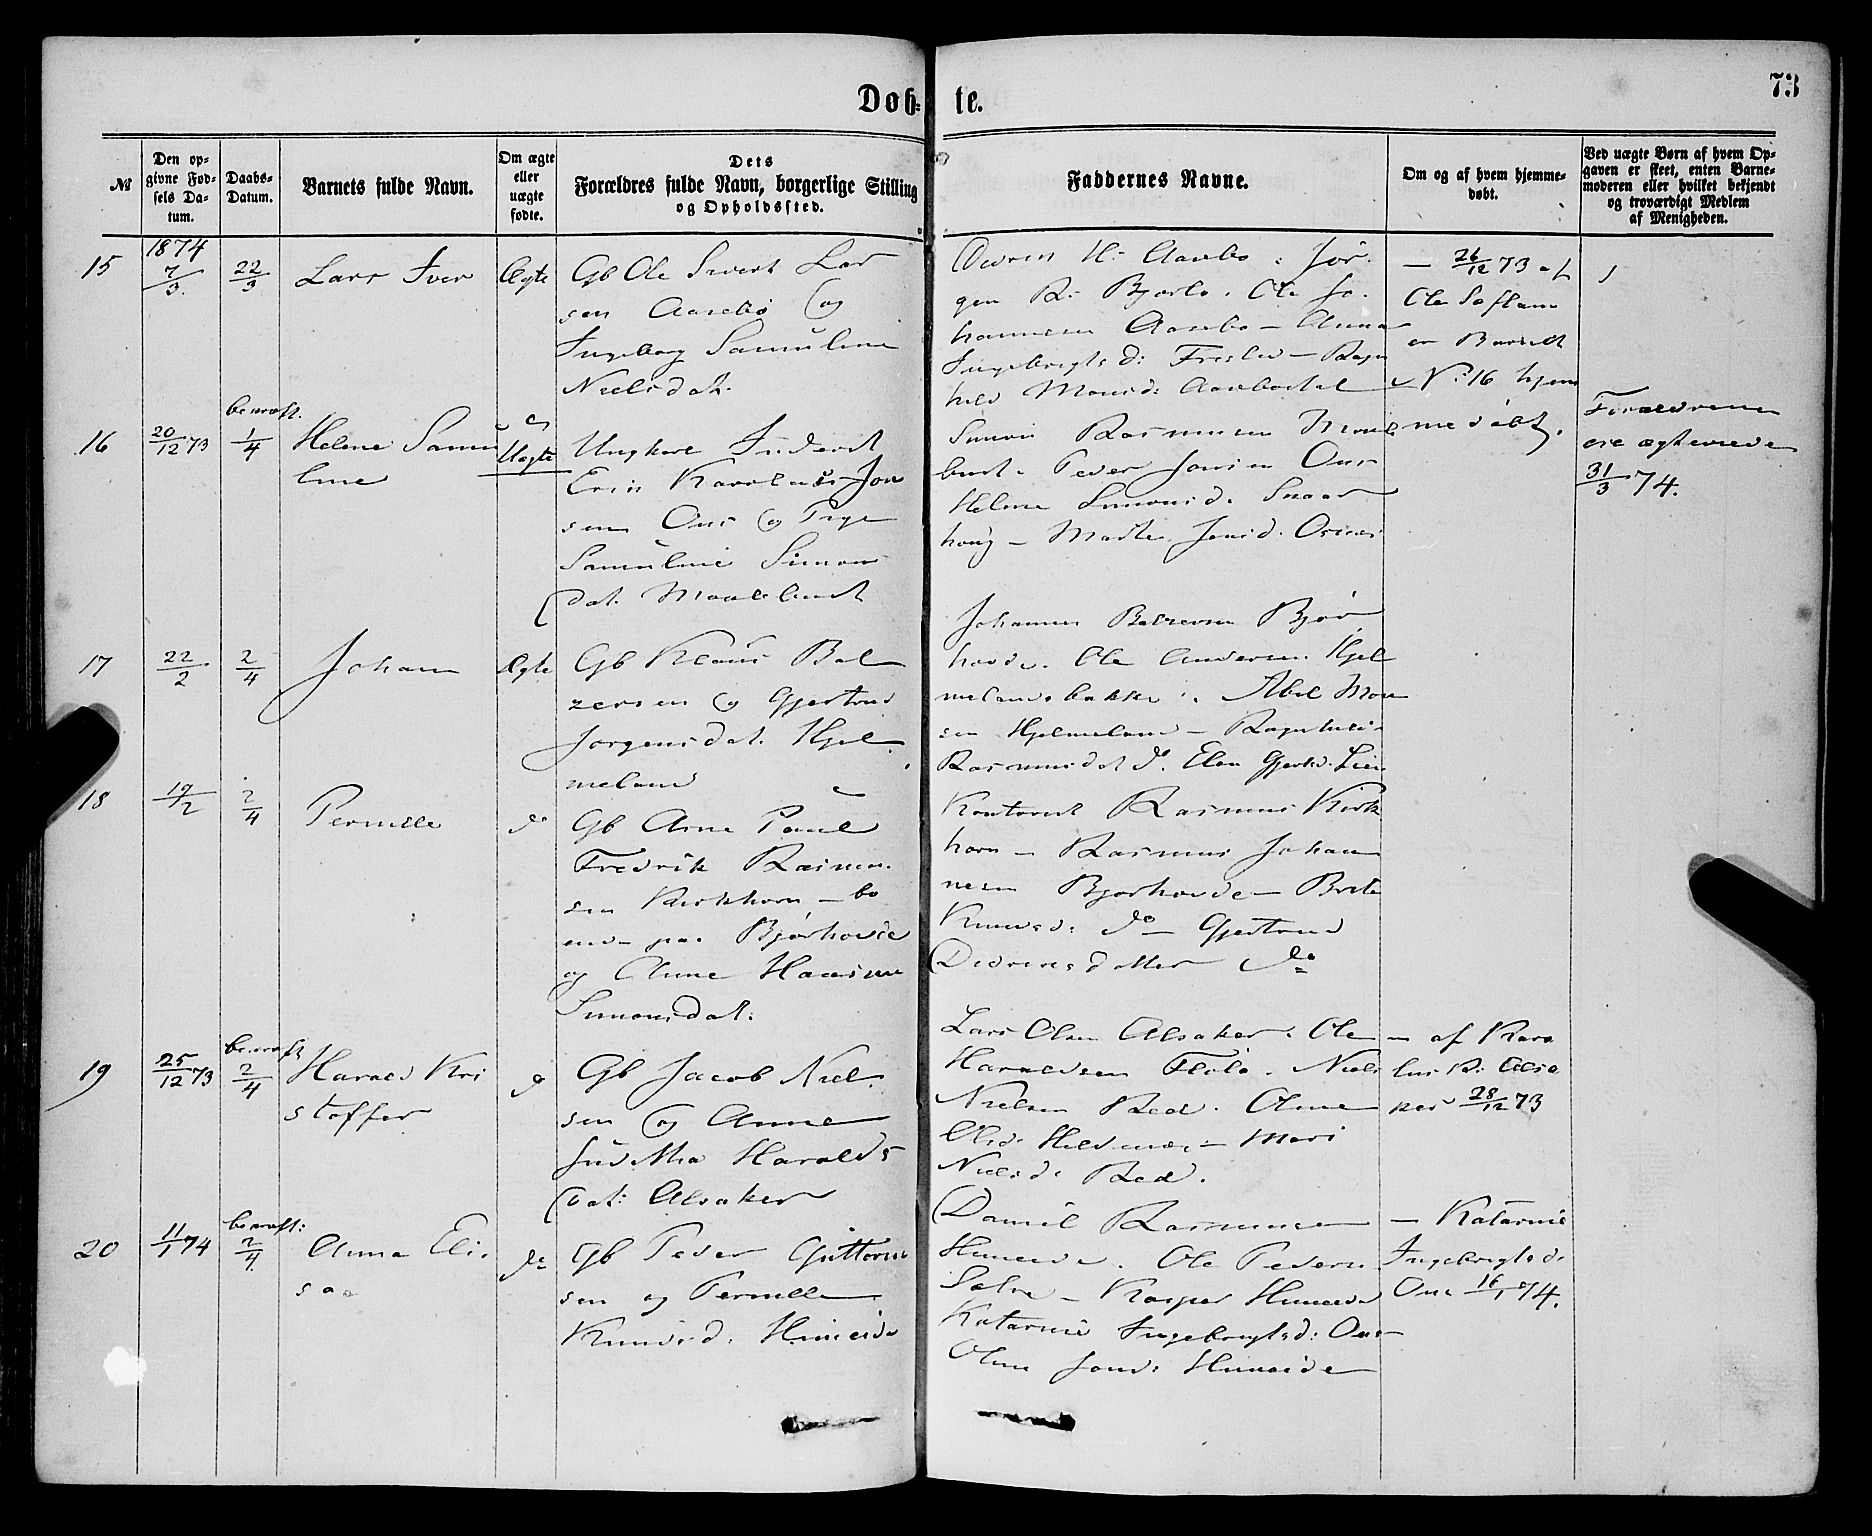 Døb-
te.
73
№
Den op-
givne Fød-
sels Da-
tum.
Daabs-
Datum.
Barnets fulde Navn.
Om ægte
eller
uægte
fødte.
Dets
Forældres fulde Navn, borgerlige Stilling
og Opholdssted.
Faddernes Navne.
Om og af hvem hjemme-
døbt.
Ved uægte Børn af hvem Op-
gaven er skeet, enten Barne-
moderen eller hvilket bekjendt
og troværdigt Medlem
af Menigheden.
1874
15 7/3. 22/3 Lars Iver Ægte
Gb Ole Sivert Lar
sen Aasebø og
Ingeborg Samuline
Nielsdat.
H. Aasebø. Jør.
gen R. Bjørlo. Ole Jo.
hannesen Aasebø – Anna
Ingebrigtsd: – Ragn
hild Monsd:
– 26/12 73 af
Ole
er
No: 16 hjem
medøbt.
bekræft.
16 20/12 73 1/4 Helene Samu
line
Uægte
Ungkarl
Karolus Jon
sen Ous og Pige
Samuline Simons
dat. Maalebust
Simon Rasmusen Maale
bust. Peder Jonsen Ous
Helene Simonsd. Snaar
houg – Marte Jonsd.
Forældrene
ere ægteviede
31/3 74.
17 22/2 2/4 Johan Ægte
Gb Klaus Bal
zersen og Gjertrud
Jørgensdat. Hjel
meland
Johannes Balzersen Bjør
hovde. Ole Andersen Hjel
melandsbakke. Abel Mon
sen Hjelmeland – Ragnhild
Rasmusdat do. Elen
18 19/2 2/4 Pernille do
Gb Arne Paul
Fredrik Rasmu.
sen Kirkhorn – bo
ende paa Bjørhovde
og Anne
Simonsdat.
Rasmus Kirk
horn – Rasmus Johan
nesen Bjørhovde – Brite
Knudsd. do – Gjertrud
Didriksdatter do
bekræft
19 25/12 73 2/4 Harald Kri
stoffer
do
Gb Jacob Niel.
sen og Anne
Juditha Haralds
dat: Alsaker
Lars Olsen Alsaker. Ole
Haraldsen Flølo. Niels
Nielsen Red. Anne
Olsd. – Mari
Nielsd. Red.
– af Karo
lus R. Alsa
ker 28/12 73
bekræft:
20 11/1 74 2/4. Anna Eli.
saa
do
Gb Peder Guttorm
sen og Pernille
Knudsd. Huneide
Daniel Rasmusen
Huneide. Ole Pedersen
– Kasper Huneide
Katarine Ingebrigtsd: Ous
Anne Jonsd: Huneide
– Katarine
Ingebrigtsd.
Ous 16/1 74.